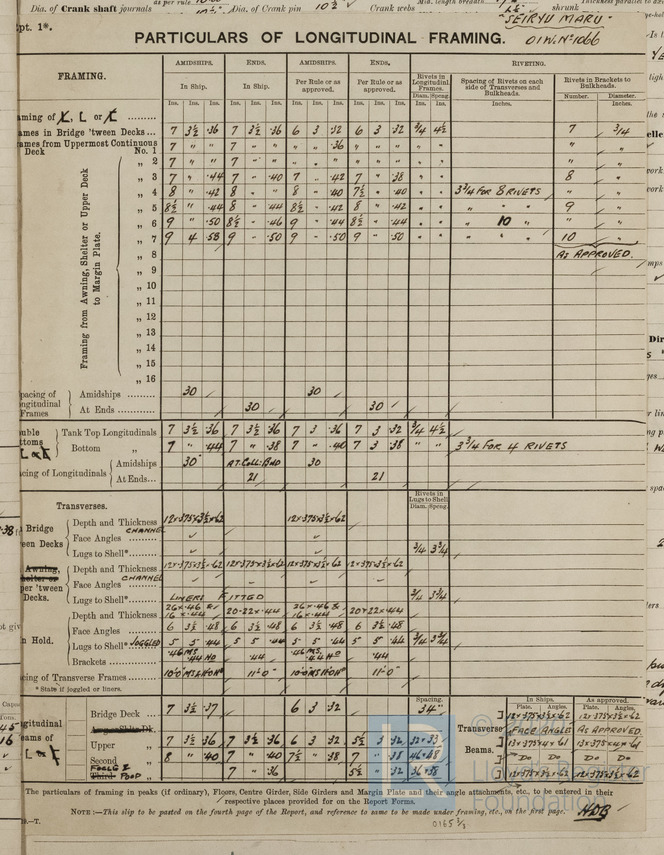 Dia. of Crank shaft journals
as per rule
Dia. of Crank pin 10½
Crank webs
shrunk
"SEIRYU MARU"
pt. 1*.
PARTICULARS OF LONGITUDINAL FRAMING.
O.I.W. No 1066
FRAMING.
AMIDSHIPS. ENDS. AMIDSHIPS. ENDS. RIVETING.
In Ship. In Ship. Per Rule or as approved. Per Rule or as approved.
Rivets in Longitudinal Frames. Diam. Spcng.
Spacing of Rivets on each side of Transverses and Bulkheads.
Rivets in Brackets to Bulkheads.
Number. Diameter.
Ins. Ins. Ins. Ins. Ins. Ins. Ins. Ins. Ins. Ins. Ins. Ins. Ins. Ins. Inches. Inches.
aming of L, L or L
ames in Bridge 'tween Decks... 7 3½ .36 7 3½ .36 6 3 .32 6 3 .32 ¾ 4½ 7 ¾
ames from Uppermost Continuous
Deck No. 1 7 " " 7 " " " " .36 " " " " " " "
„ 2 7 " " 7 " " " " " " " " " " " "
„ 3 7 " .44 7 " .40 7 " .42 7 " .38 " " 8 "
„ 4 8 " .42 8 " .44 8 " .40 7½ " .40 " " 3¾ FOR 8 RIVETS " "
„ 5 8½ " .44 8 " .44 8½ " .42 8 " .42 " " " " " 9 "
„ 6 9 " .50 8½ " .46 9 " .44 8½ " .44 " " " 10 " " "
„ 7 9 4 .58 9 " .50 9 " .50 9 " .50 " " " " " 10 "
„ 8 AS APPROVED.
„ 9
„ 10
„ 11
„ 12
„ 13
„ 14
„ 15
„ 16
Framing from Awning, Shelter or Upper Deck
to Margin Plate.
pacing of
ngitudinal
Frames
Amidships ......... 30 30
At Ends ......... 30 30
uble
ttoms
Tank Top Longitudinals 7 3½ .36 7 3½ .36 7 3 .36 7 3 .32 ¾ 4½
Bottom „ 7 " .44 7 " .38 7 " .40 7 3 .38 " " 3¾ FOR 4 RIVETS
cing of Longitudinals
Amidships 30 AT COLL: BHD 30
At Ends... 21 21
Transverses.
Rivets in Lugs to Shell Diam. Spcng.
Bridge
een Decks
Depth and Thickness 12×.375×3½×.62 12×.375×3½×.62
CHANNEL
Face Angles
Lugs to Shell* ¾ 3¾
Awning,
shelter or
per 'tween
Decks.
Depth and Thickness 12×.375×3½×.62 12×.375×3½×.62 12×.375×3½×.62 12×.375×3½×.62
CHANNEL
Face Angles
Lugs to Shell* LINERS FITTED ¾ 3¾
n Hold.
Depth and Thickness 26×.46 & 16×.44 20-22×.44 26×.46 & 16×.44 20×22×.44
Face Angles 6 3½ .48 6 3½ .48 6 3½ .48 6 3½ .48
Lugs to Shell* JOGGLED 5 5 .44 5 5 .44 5 5 .44 5 5 .44 ¾ 3¾
Brackets .46 MS. .44 HO .44 .46 MS. .44 HO .44
cing of Transverse Frames 11'-0" 11'-0"
* State if joggled or liners.
ngitudinal
eams of
Spacing.
Bridge Deck 7 3½ .37 6 3 .32 34"
Upper „ 7 3½ .36 7 3½ .36 6 3 .32 5½ 3 .32 32×33
Second „ 8 " .40 7 " .40 7 " .38 7 " .38 46×48
Third „ POOP 7 " .36 5½ " .32 36×38
Transverse
Beams.
In Ships. As approved.
Plate. Angles. Plate. Angles.
12×.375×3½×.62 12×.375×3½×.62
FACE ANGLE AS APPROVED
Do Do Do Do
12×.375×3½×.62 12×.375×3½×.62
The particulars of framing in peaks (if ordinary), Floors, Centre Girder, Side Girders and Margin Plate and their angle attachments, etc., to be entered in their
respective places provided for on the Report Forms.
NOTE :—This slip to be pasted on the fourth page of the Report, and reference to same to be made under framing, etc., on the first page.
—T.
0165 3/3